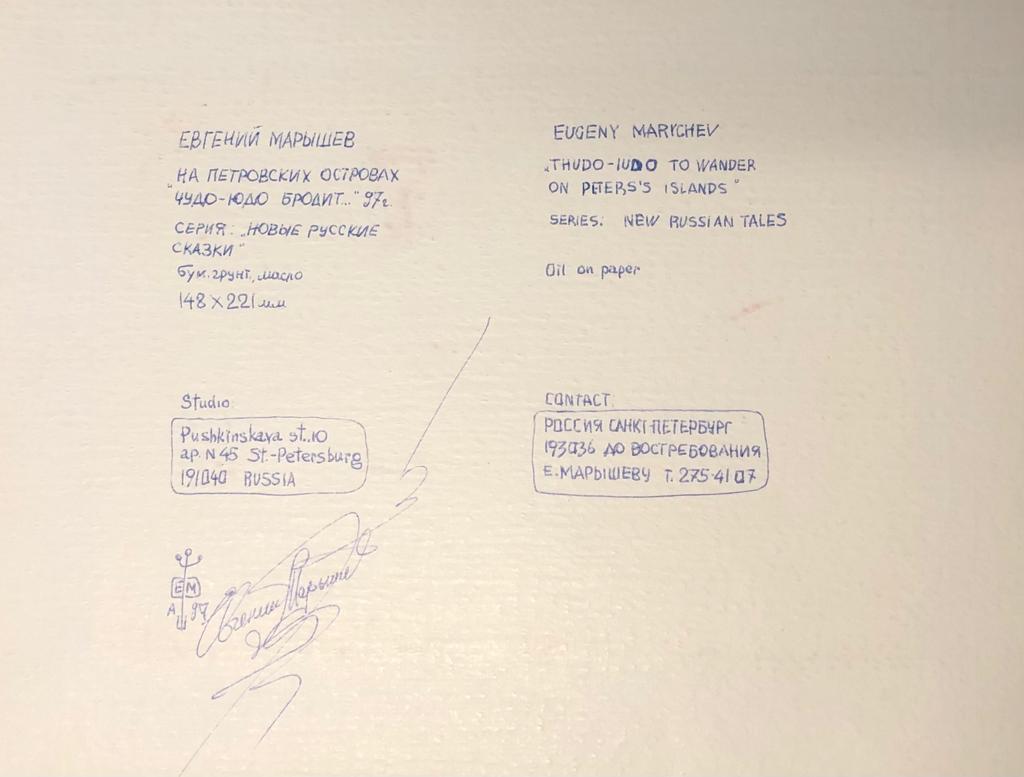 ЕВГЕНИЙ МАРЫШЕВ
НА ПЕТРОВСКИХ ОСТРОВАХ
"ЧУДО-ЮДО БРОДИТ..." 97г.
СЕРИЯ: „НОВЫЕ РУССКИЕ
СКАЗКИ"
бум. грунт., масло
148 × 221 мм
EUGENY MARYCHEV
„THUDO-IUDO TO WANDER
ON PETERS'S ISLANDS"
SERIES: NEW RUSSIAN TALES
Oil on paper
Studio
Pushkinskaya st..10
ap. N 45 St.-Petersburg
191040 RUSSIA
CONTACT
РОССИЯ САНКТ-ПЕТЕРБУРГ
193036 ДО ВОСТРЕБОВАНИЯ
Е. МАРЫШЕВУ Т. 275-41 07
ЕМ
А 97
Евгений Марышев